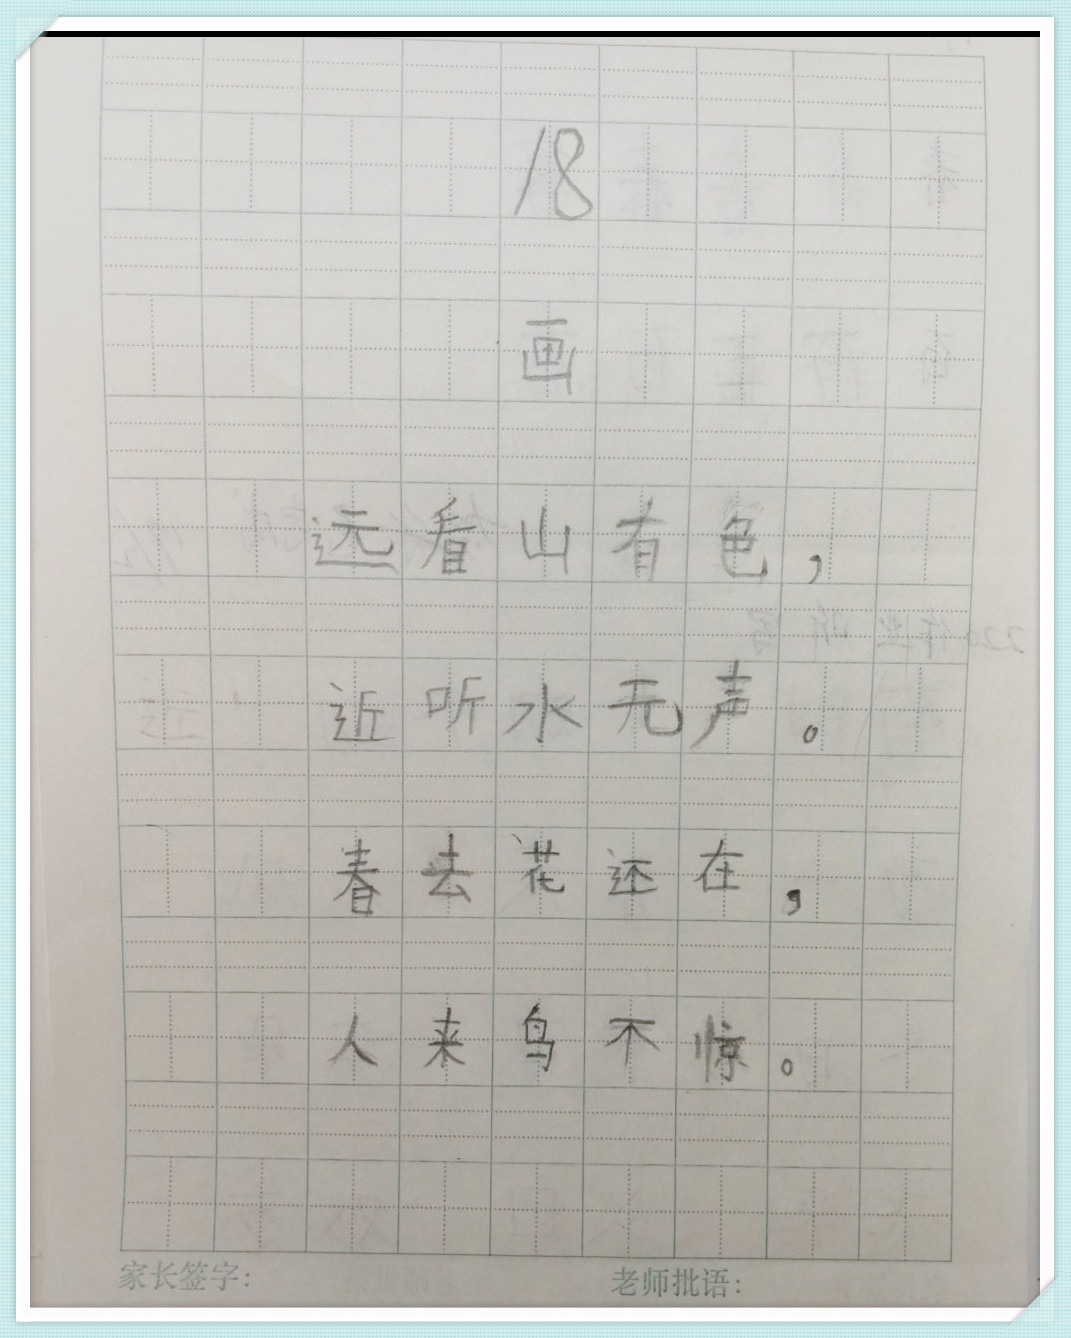 18
画
远看山有色，
近听水无声。
春去花还在，
人来鸟不惊。
家长签字： 老师批语：